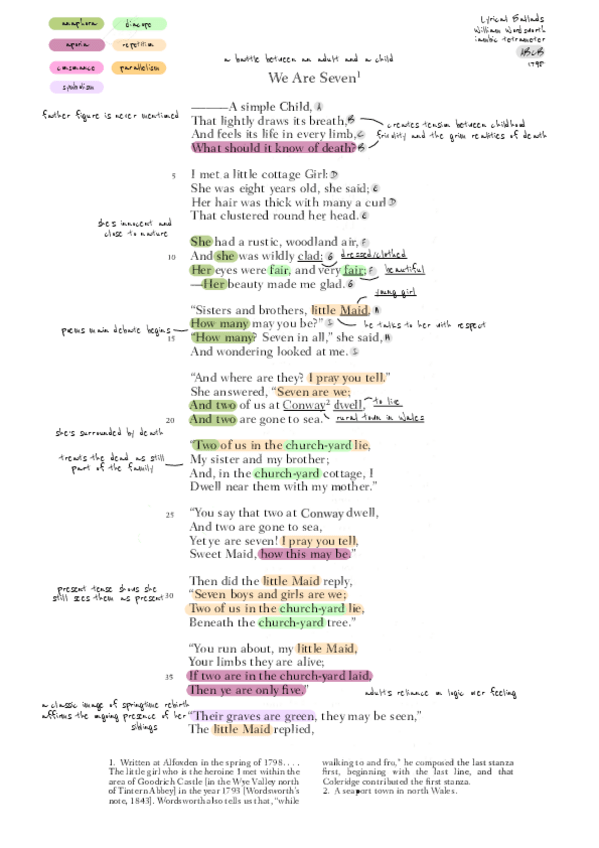 anaphora
diacope
aporia
repetition
consonance
parallelism
symbolism
Lyrical Ballads
William Wordsworth
iambic tetrameter
ABCB
1798
a battle between an adult and a child
We Are Seven¹
———A simple Child, A
That lightly draws its breath, B
And feels its life in every limb, C
What should it know of death? B
father figure is never mentioned
creates tension between childhood
fridity and the grim realities of death
5 I met a little cottage Girl: D
She was eight years old, she said; E
Her hair was thick with many a curl D
That clustered round her head. E
she's innocent and
close to nature
She had a rustic, woodland air, F
10 And she was wildly clad: G dressed/clothed
Her eyes were fair, and very fair; F beautiful
—Her beauty made me glad. G
young girl
"Sisters and brothers, little Maid, H
poems main debate begins
How many may you be?" I he talks to her with respect
15 "How many? Seven in all," she said, H
And wondering looked at me. I
"And where are they? I pray you tell."
She answered, "Seven are we;
And two of us at Conway² dwell, to live
20 And two are gone to sea. rural town in Wales
she's surrounded by death
treats the dead as still
part of the family
"Two of us in the church-yard lie,
My sister and my brother;
And, in the church-yard cottage, I
Dwell near them with my mother."
25 "You say that two at Conway dwell,
And two are gone to sea,
Yet ye are seven! I pray you tell,
Sweet Maid, how this may be."
Then did the little Maid reply,
present tense shows she
still sees them as present
30 "Seven boys and girls are we;
Two of us in the church-yard lie,
Beneath the church-yard tree."
"You run about, my little Maid,
Your limbs they are alive;
35 If two are in the church-yard laid,
Then ye are only five."
adults reliance on logic over feeling
a classic image of springtime rebirth
affirms the ongoing presence of her
siblings
"Their graves are green, they may be seen,"
The little Maid replied,
1. Written at Alfoxden in the spring of 1798. . . .
The little girl who is the heroine I met within the
area of Goodrich Castle [in the Wye Valley north
of Tintern Abbey] in the year 1793 [Wordsworth's
note, 1843]. Wordsworth also tells us that, "while
walking to and fro," he composed the last stanza
first, beginning with the last line, and that
Coleridge contributed the first stanza.
2. A seaport town in north Wales.